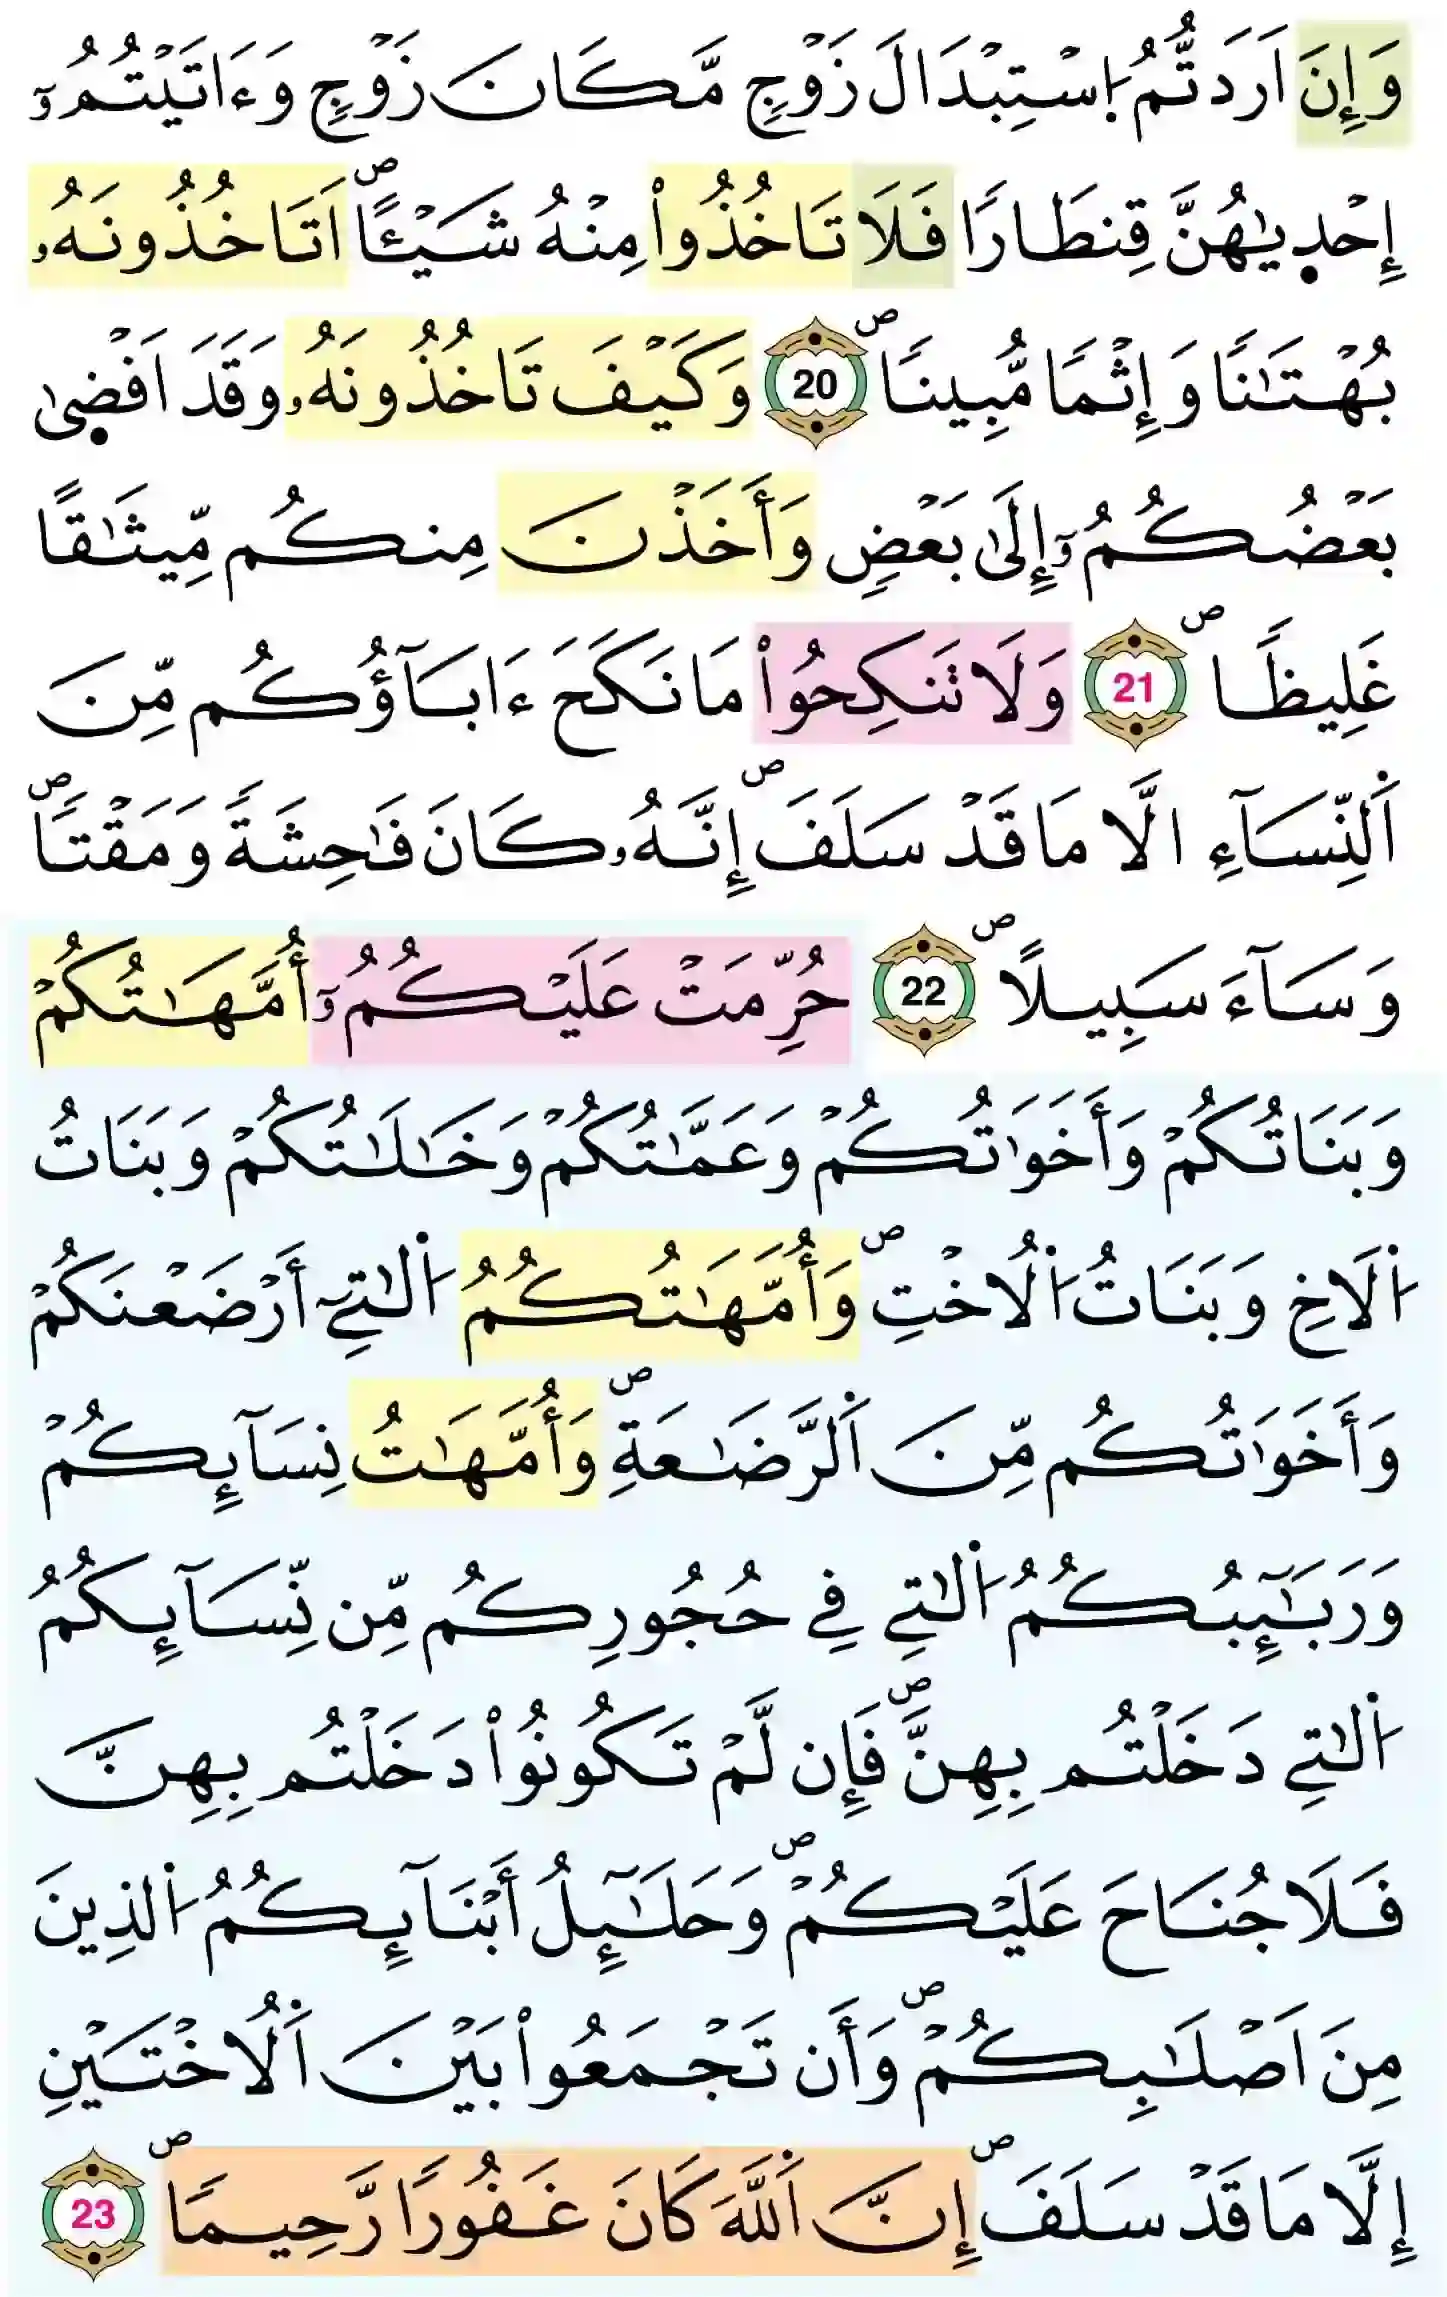 وَإِنَ اَرَدتُّمُ اُ۪سْتِبْدَالَ زَوْجٖ مَّكَانَ زَوْجٖ وَءَاتَيْتُمُۥٓ
إِحْد۪يٰهُنَّ قِنطَارًا فَلَا تَاخُذُواْ مِنْهُ شَيْـًٔاۖ اَتَاخُذُونَهُۥ
بُهْتَٰنًا وَإِثْمًا مُّبِينًاۖ 20 وَكَيْفَ تَاخُذُونَهُۥ وَقَدَ اَفْض۪يٰ
بَعْضُكُمُۥٓ إِلَىٰ بَعْضٖ وَأَخَذْنَ مِنكُم مِّيثَٰقًا
غَلِيظًاۖ 21 وَلَا تَنكِحُواْ مَا نَكَحَ ءَابَآؤُكُم مِّنَ
اَ۬لنِّسَآءِ الَّا مَا قَدْ سَلَفَۖ إِنَّهُۥ كَانَ فَٰحِشَةً وَمَقْتًاۖ
وَسَآءَ سَبِيلًاۖ 22 حُرِّمَتْ عَلَيْكُمُۥٓ أُمَّهَٰتُكُمْ
وَبَنَاتُكُمْ وَأَخَوَٰتُكُمْ وَعَمَّٰتُكُمْ وَخَٰلَٰتُكُمْ وَبَنَاتُ
اُ۬لَاخِ وَبَنَاتُ اُ۬لُاخْتِۖ وَأُمَّهَٰتُكُمُ اُ۬لَٰتِےٓ أَرْضَعْنَكُمْ
وَأَخَوَٰتُكُم مِّنَ اَ۬لرَّضَٰعَةِۖ وَأُمَّهَٰتُ نِسَآئِكُمْ
وَرَبَٰٓئِبُكُمُ اُ۬لَٰتِے فِے حُجُورِكُم مِّن نِّسَآئِكُمُ
اُ۬لَٰتِے دَخَلْتُم بِهِنَّۖ فَإِن لَّمْ تَكُونُواْ دَخَلْتُم بِهِنَّ
فَلَا جُنَاحَ عَلَيْكُمْۖ وَحَلَٰٓئِلُ أَبْنَآئِكُمُ اُ۬لذِينَ
مِنَ اَصْلَٰبِكُمْۖ وَأَن تَجْمَعُواْ بَيْنَ اَ۬لُاخْتَيْنِ
إِلَّا مَا قَدْ سَلَفَۖ إِنَّ اَ۬للَّهَ كَانَ غَفُورًا رَّحِيمًاۖ 23